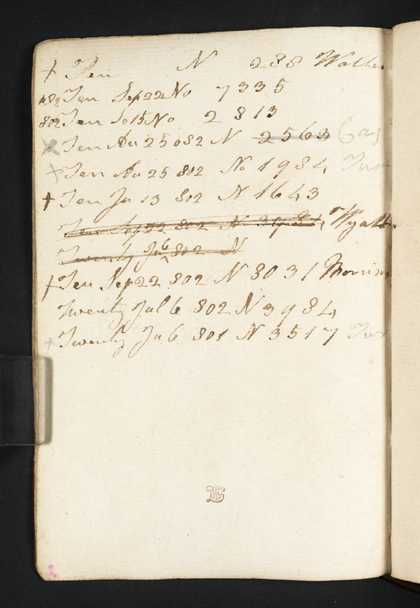 + Ten N 238 Walke
Ten Sep 22 No 7335
802 Ten No 2813
x Ten Au 25 082 N 2563
x Ten Au 25 802 No 1984
+ Ten Ja 13 802 N 1643
Ten 22 802 N Wyatt
Twenty 802 N
+ Ten Sep 22 802 N 8031 Morris
Twenty Jul 6 802 N 3984
+ Twenty Ja 6 801 N 3517